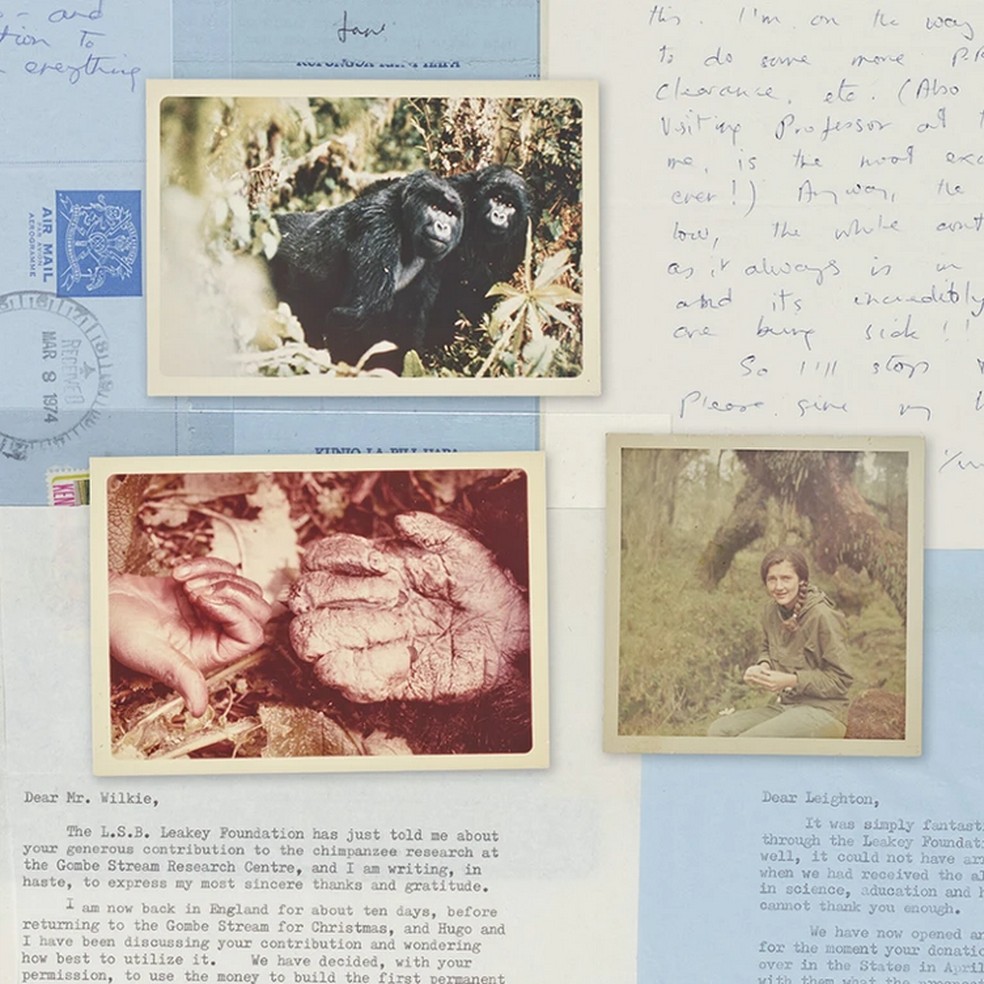 - and
tion to
everything
Jane
this. I'm on the way
to do some more P.R
clearance, etc. (Also
Visiting Professor at
me, is the most exc
ever!) Anyway, the
low, the whole cont
as it always is in
and its incredibly
one being sick!!
So I'll stop
Please give my
AIR MAIL
PAR AVION
AEROGRAMME
RECEIVED
MAR 8 1974
KEN
Dear Mr. Wilkie,
The L.S.B. Leakey Foundation has just told me about
your generous contribution to the chimpanzee research at
the Gombe Stream Research Centre, and I am writing, in
haste, to express my most sincere thanks and gratitude.
I am now back in England for about ten days, before
returning to the Gombe Stream for Christmas, and Hugo and
I have been discussing your contribution and wondering
how best to utilize it. We have decided, with your
permission, to use the money to build the first permanent
Dear Leighton,
It was simply fantasti
through the Leakey Foundati
well, it could not have arr
when we had received the al
in science, aducation and h
cannot thank you enough.
We have now opened an
for the moment your donatio
over in the States in April
with them what the prospect